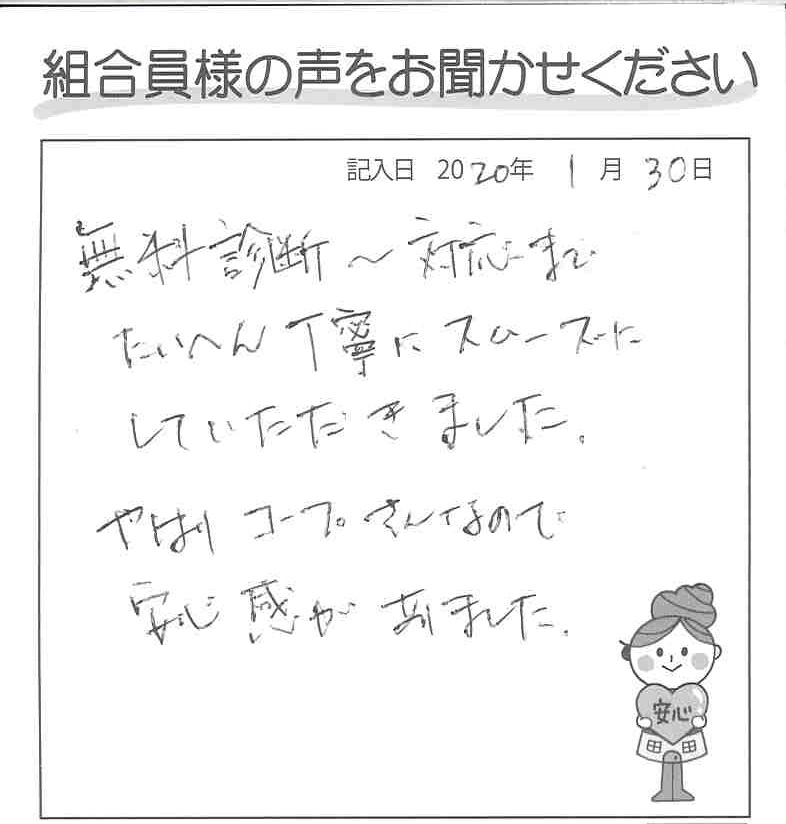 組合員様の声をお聞かせください
記入日 2020年 1月 30日
無料診断〜対応まで
たいへん丁寧にスムーズに
していただきました。
やはりコープさんなので
安心感がありました。
安心